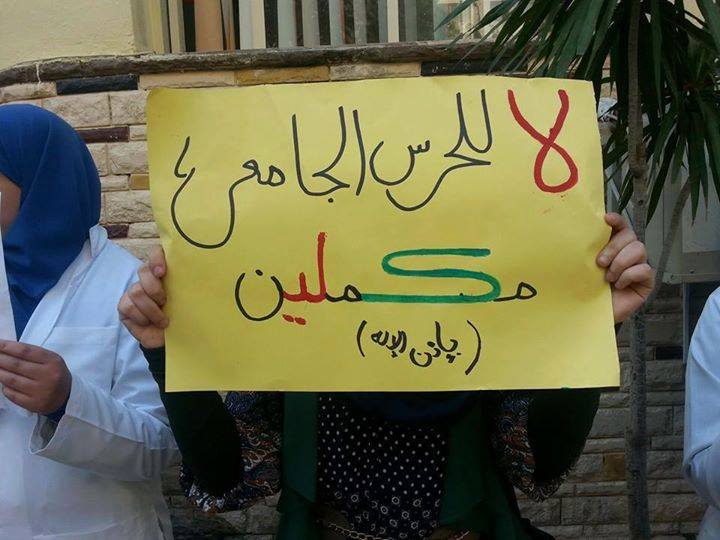 لا للحرس الجامعي
مكملين
(بإذن الله)